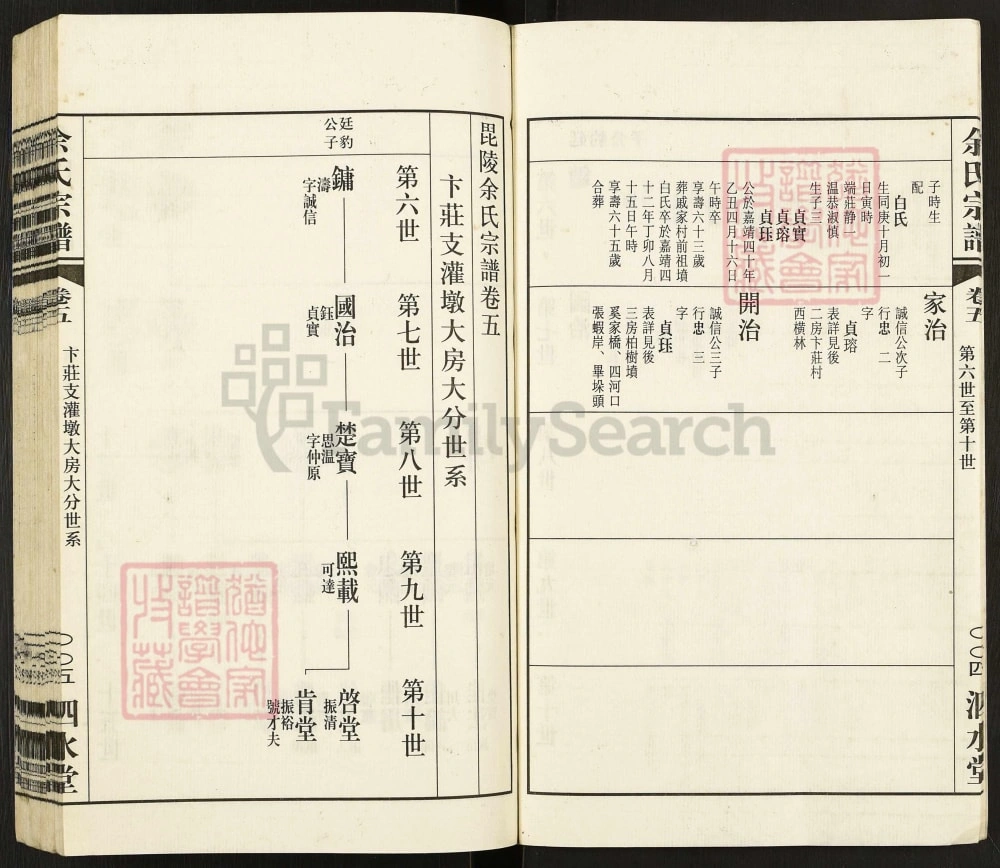 余氏宗譜
卷五
第六世至第十世
〇〇四
泗水堂
子時生
配
白氏
生同庚十月初一
日寅時
端莊静一
温恭淑慎
生子三
貞實
貞瑢
貞珏
公於嘉靖四十年
乙丑四月十六日
午時卒
享壽六十三歲
葬戚家村前祖墳
白氏卒於嘉靖四
十二年丁卯八月
十五日午時
享壽六十五歲
合葬
家治
誠信公次子
行忠 二
字
貞瑢
表詳見後
二房卞莊村
西橫林
開治
誠信公三子
行忠 三
字
貞珏
表詳見後
三房柏樹墳
奚家橋、四河口
張蝦岸、畢垛頭
毘陵余氏宗譜卷五
卞莊支灌墩大房大分世系
第六世
第七世
第八世
第九世
第十世
廷豹
公子
鏞
濤
字誠信
國治
鈺
貞實
楚寶
思溫
字仲原
熙載
可達
啓堂
振清
肯堂
振裕
號才夫
余氏宗譜
卷五
卞莊支灌墩大房大分世系
〇〇五
泗水堂
FamilySearch